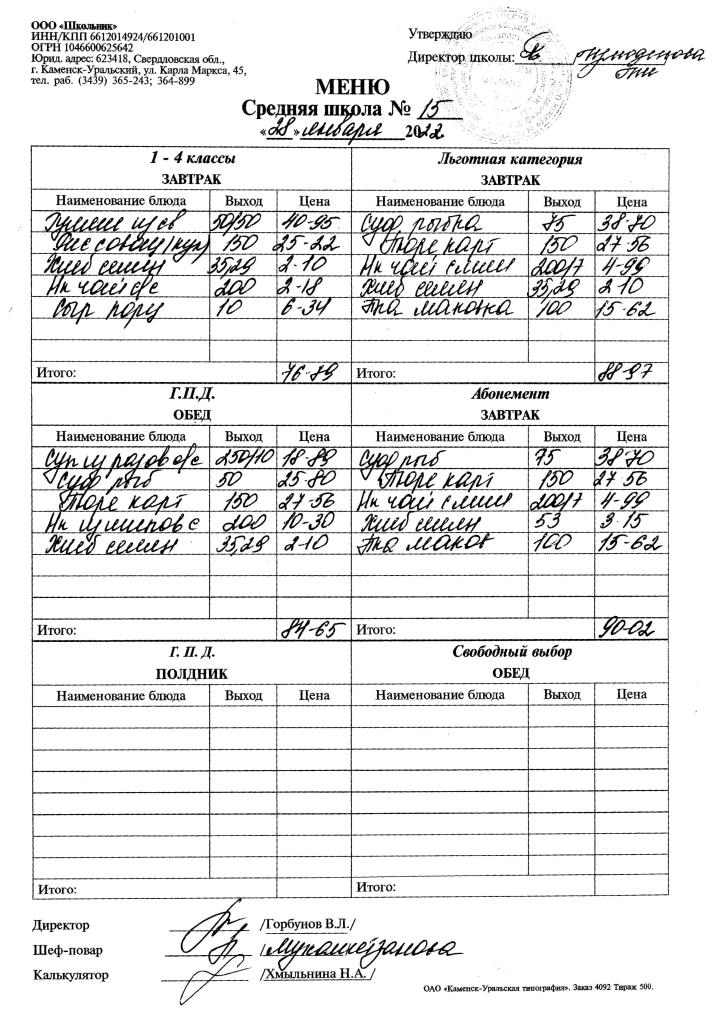 ООО «Школьник»
ИНН/КПП 6612014924/661201001
ОГРН 1046600625642
Юрид. адрес: 623418, Свердловская обл.,
г. Каменск-Уральский, ул. Карла Маркса, 45,
тел. раб. (3439) 365-243; 364-899
Утверждаю
Директор школы:
МЕНЮ
Средняя школа № 15
«28» января 2022
1 - 4 классы
ЗАВТРАК
Наименование блюда Выход Цена
50/50 40-95
150 25-22
Хлеб 35,29 2-10
Нк чай с/с 200 2-18
Сыр порц 10 6-34
Итого: 76-89
Льготная категория
ЗАВТРАК
Наименование блюда Выход Цена
Суф рыбка 75 38-70
Пюре карт 150 27-56
Нк чай с лим 200/7 4-99
Хлеб 35,29 2-10
маковка 100 15-62
Итого: 88-97
Г.П.Д.
ОБЕД
Наименование блюда Выход Цена
Суп 250/10 18-89
Суф рыб 50 25-80
Пюре карт 150 27-56
Нк 200 10-30
Хлеб 35,29 2-10
Итого: 84-65
Абонемент
ЗАВТРАК
Наименование блюда Выход Цена
Суф рыб 75 38-70
Пюре карт 150 27-56
Нк чай с лим 200/7 4-99
Хлеб 53 3-15
маков 100 15-62
Итого: 90-02
Г. П. Д.
ПОЛДНИК
Наименование блюда Выход Цена
Итого:
Свободный выбор
ОБЕД
Наименование блюда Выход Цена
Итого:
Директор /Горбунов В.Л./
Шеф-повар /
Калькулятор /Хмыльнина Н.А. /
ОАО «Каменск-Уральская типография». Заказ 4092 Тираж 500.